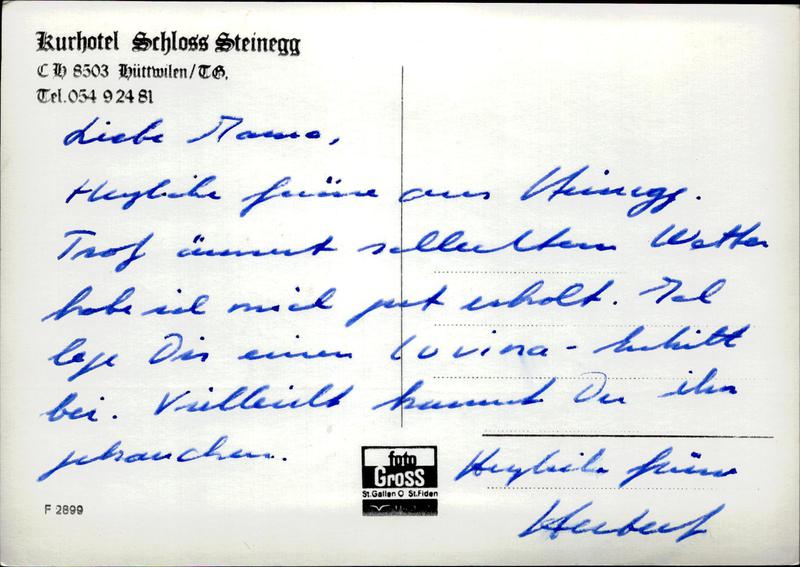 Kurhotel Schloss Steinegg
CH 8503 Hüttwilen/TG,
Tel. 054 9 24 81
Liebe Mama,
Herzliche Grüsse aus Steinegg.
Trotz äusserst schlechtem Wetter
habe ich mich gut erholt. Ich
lege Dir einen - Schnitt
bei. Vielleicht kannst Du ihn
gebrauchen.
Herzliche Grüsse
Herbert
foto
Gross
St.Gallen St.Fiden
F 2899